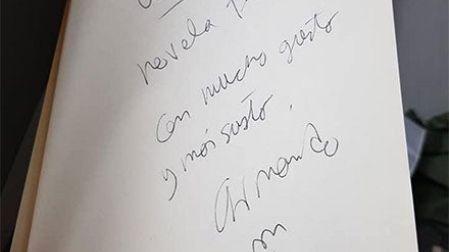 novela
con mucho gusto
y más susto.
Armando